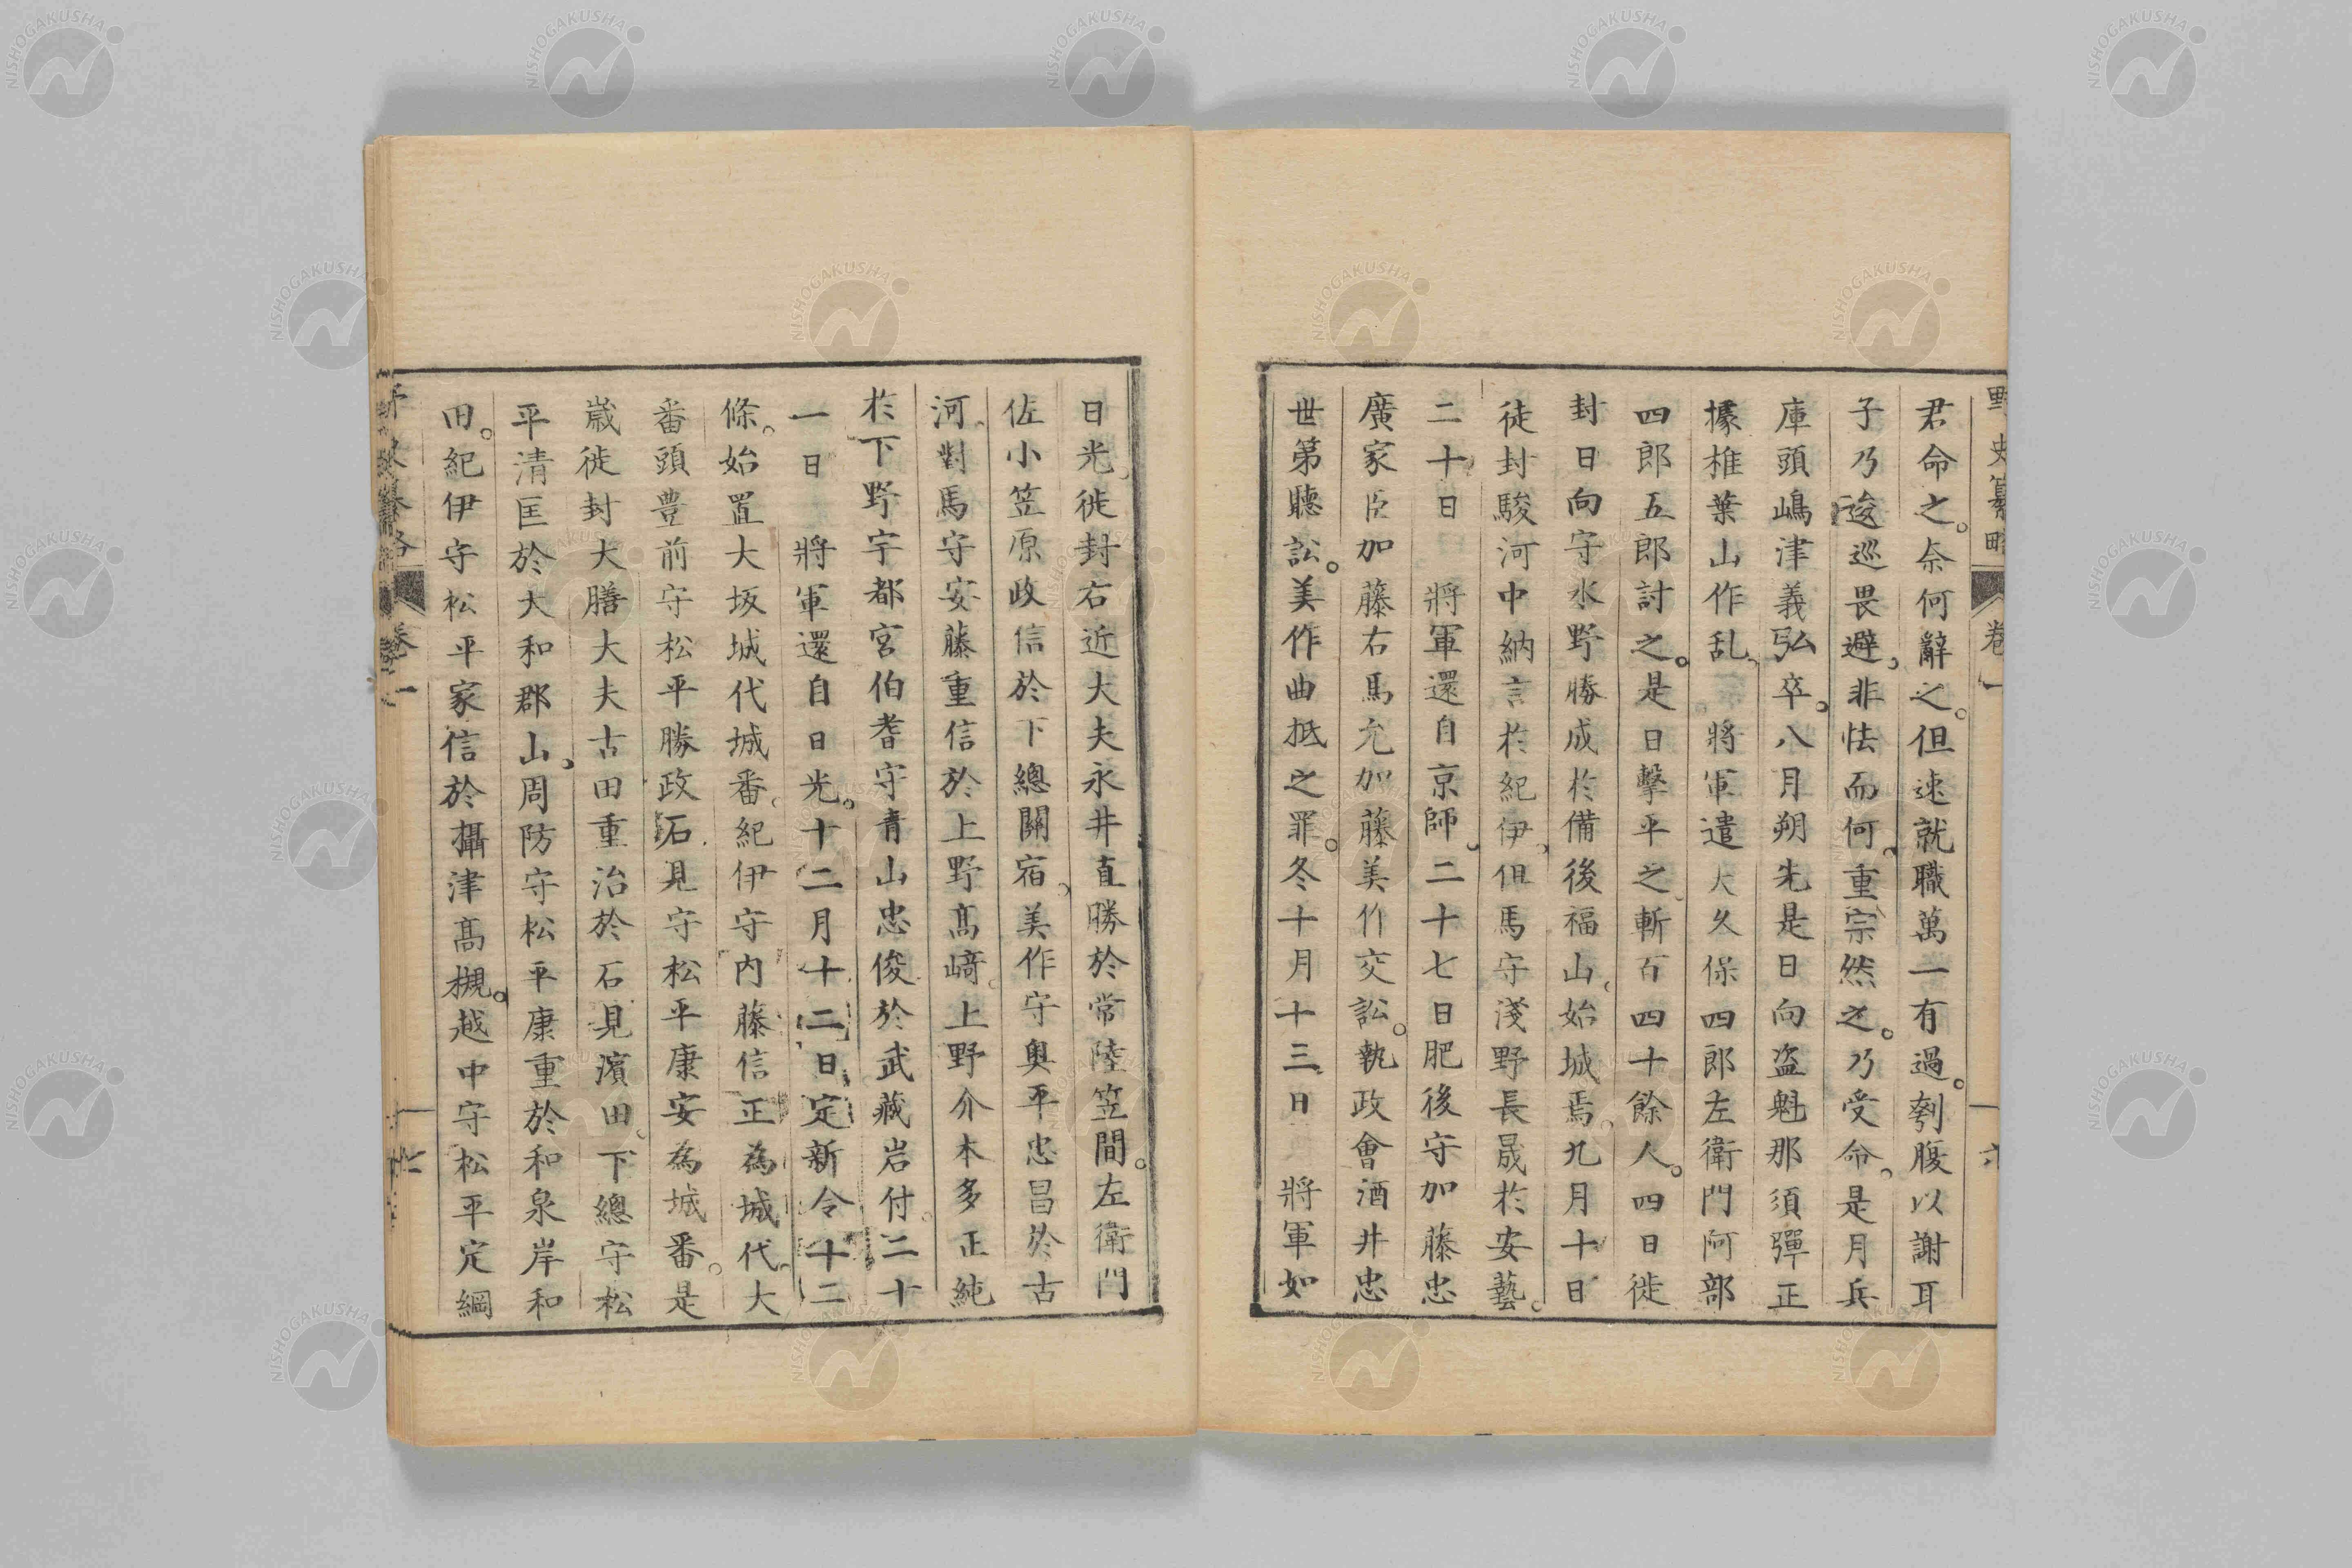 野史纂略 卷一 六
君命之。奈何辭之。但速就職萬一有過。刳腹以謝耳
子乃逡巡畏避。非怯而何。重宗然之。乃受命。是月兵
庫頭嶋津義弘卒。八月朔先是日向盜魁那須彈正
據椎葉山作乱。將軍遣大久保四郎左衛門阿部
四郎五郎討之。是日擊平之斬百四十餘人。四日徙
封日向守水野勝成於備後福山。始城焉。九月十日
徒封駿河中納言於紀伊。但馬守淺野長晟於安藝。
二十日 將軍還自京師。二十七日肥後守加藤忠
廣家臣加藤右馬允加藤美作交訟。執政會酒井忠
世第聽訟。美作曲抵之罪。冬十月十三日 將軍如
日光。徙封右近大夫永井直勝於常陸笠間。左衛門
佐小笠原政信於下總關宿。美作守奥平忠昌於古
河。對馬守安藤重信於上野髙﨑。上野介本多正純
於下野宇都宮伯耆守青山忠俊於武藏岩付。二十
一日 將軍還自日光。十二月十二日定新令十二
條。始置大坂城代城番。紀伊守内藤信正為城代。大
番頭豊前守松平勝政石見守松平康安為城番。是
歲徙封大膳大夫古田重治於石見濱田。下總守松
平清匡於大和郡山。周防守松平康重於和泉岸和
田。紀伊守松平家信於攝津髙槻。越中守松平定綱
NISHOGAKUSHA